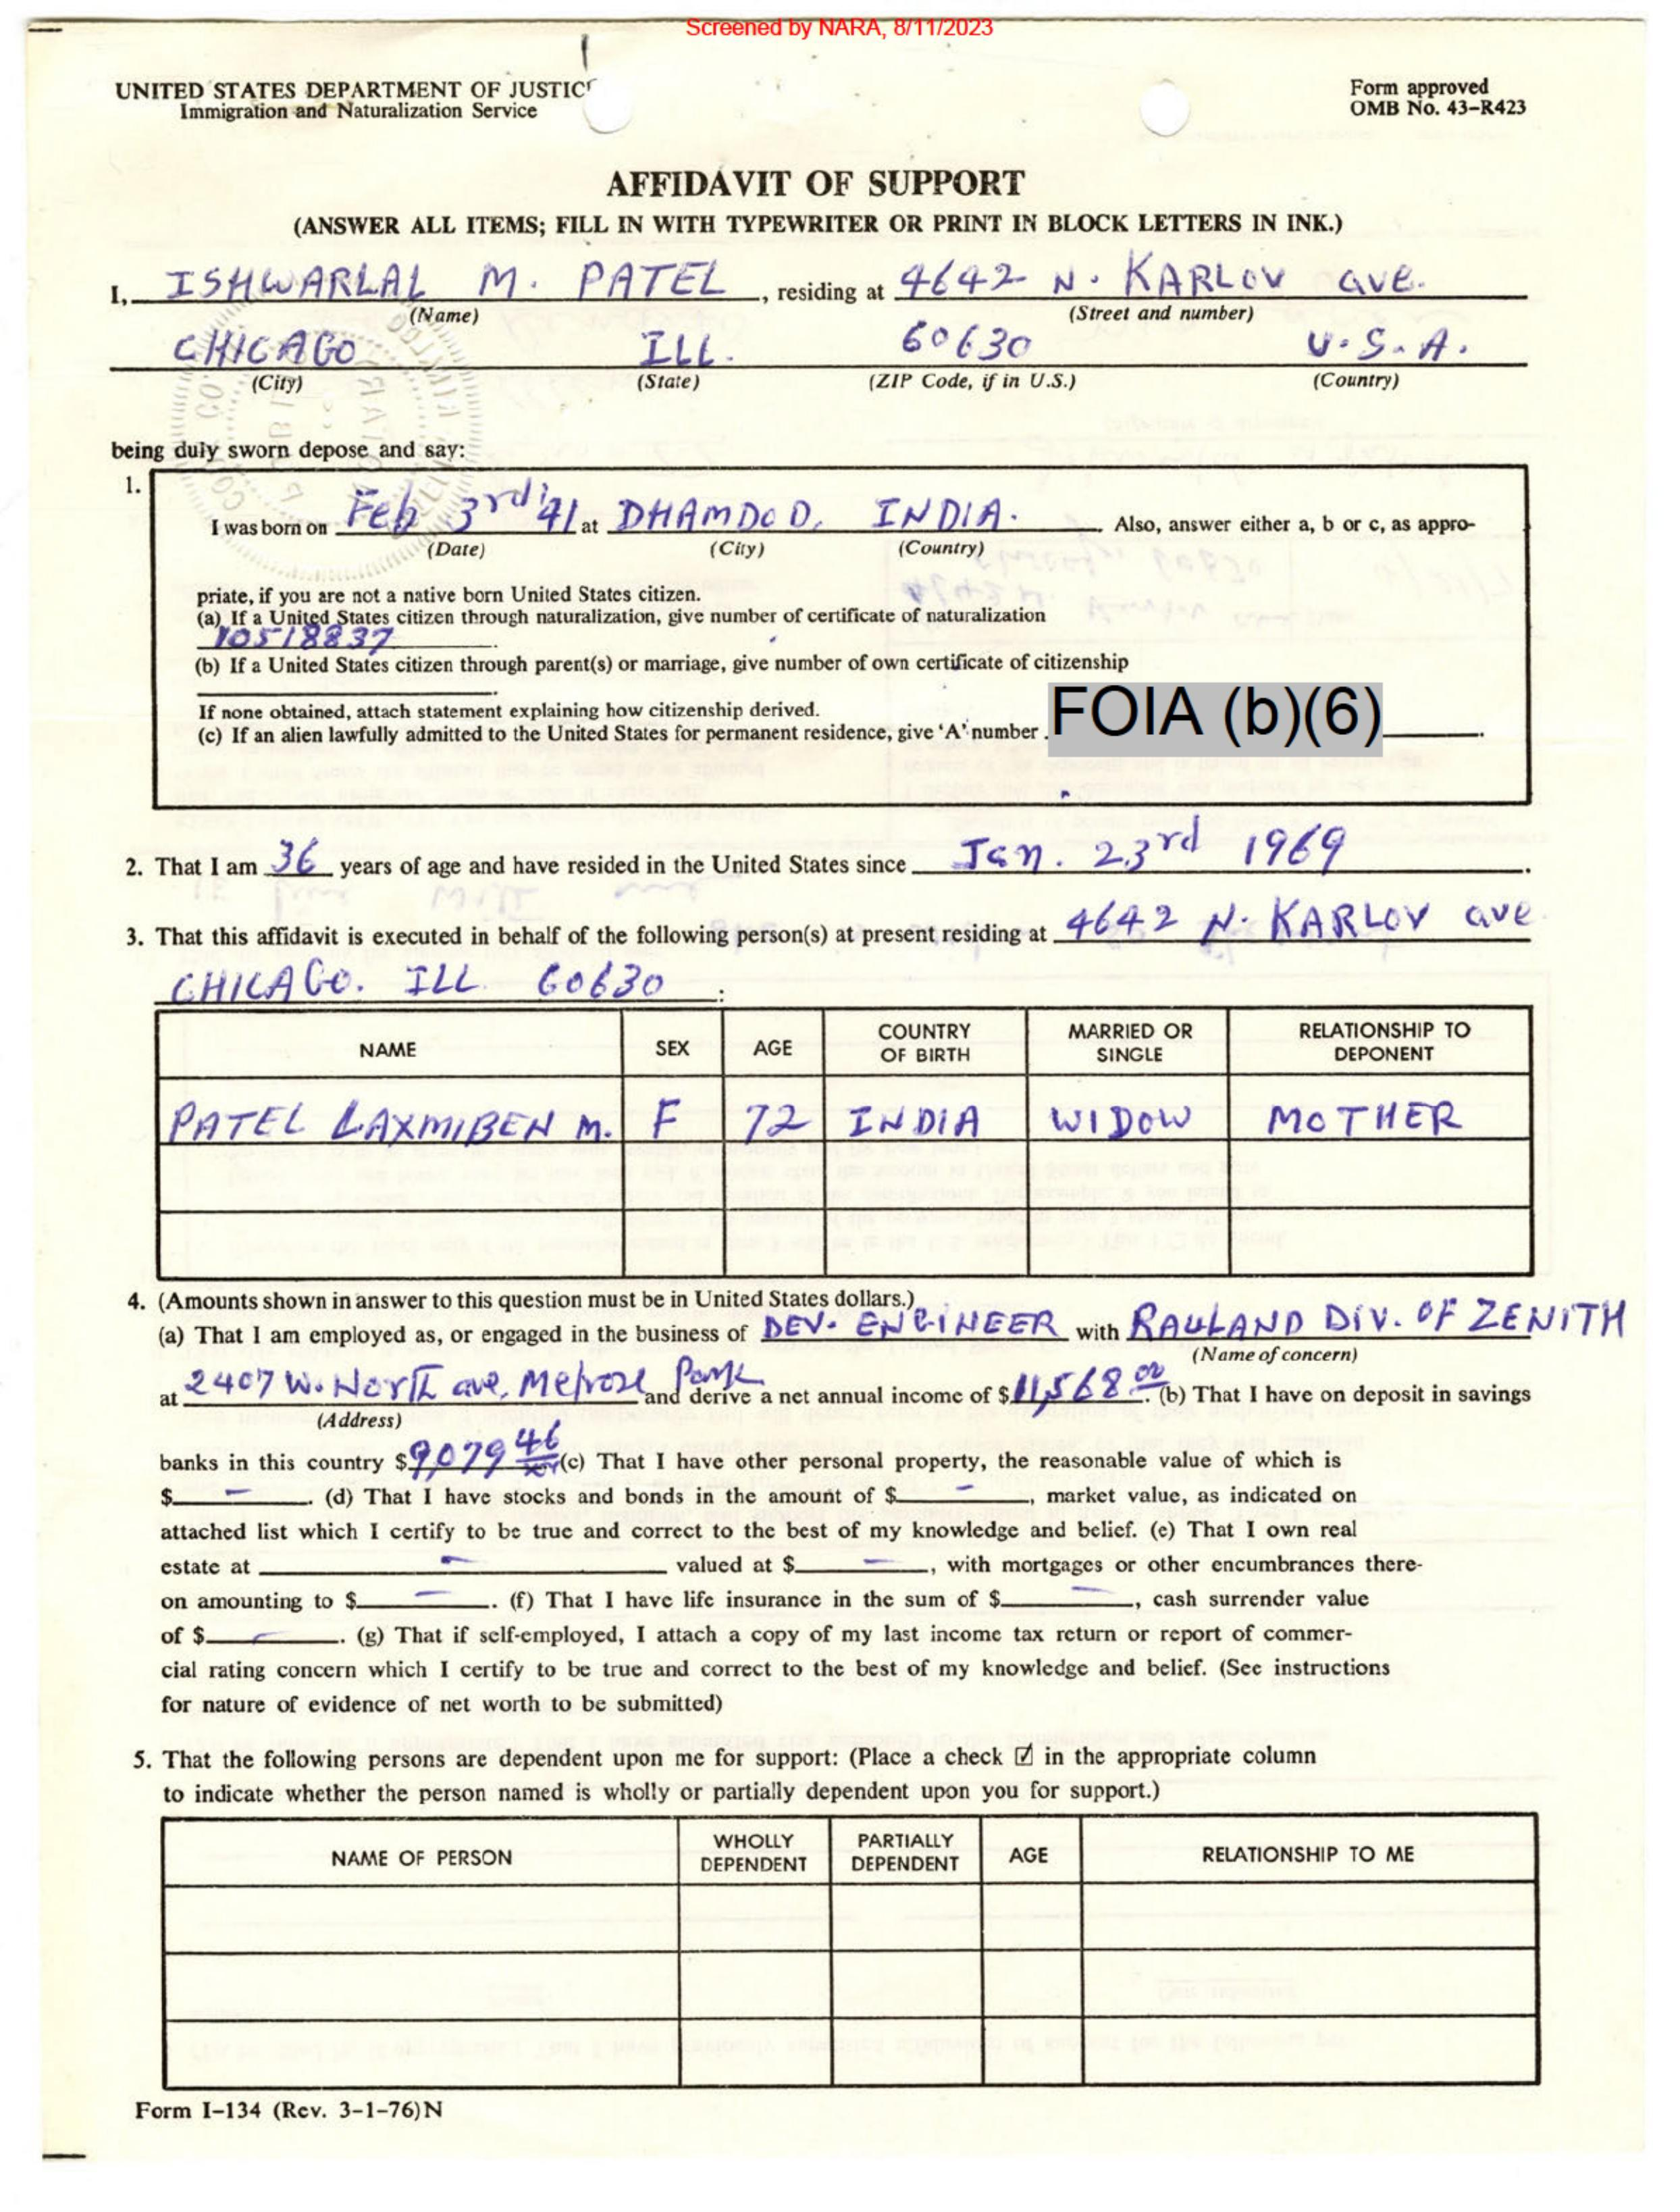 Screened by NARA, 8/11/2023
UNITED STATES DEPARTMENT OF JUSTIC
Form approved
Immigration and Naturalization Service
OMB No. 43-R423
AFFIDAVIT OF SUPPORT
(ANSWER ALL ITEMS; FILL IN WITH TYPEWRITER OR PRINT IN BLOCK LETTERS IN INK.)
I, ISHWARLAL M. PATEL, residing at 4642 N. KARLOV ave.
(Name) (Street and number)
CHICAGO ILL. 60630 U.S.A.
(City) (State) (ZIP Code, if in U.S.) (Country)
being duly sworn depose and say:
1.
I was born on Feb 3rd '41 at DHAMDOD, INDIA. Also, answer either a, b or c, as appro-
(Date) (City) (Country)
priate, if you are not a native born United States citizen.
(a) If a United States citizen through naturalization, give number of certificate of naturalization
10518837.
(b) If a United States citizen through parent(s) or marriage, give number of own certificate of citizenship
If none obtained, attach statement explaining how citizenship derived.
(c) If an alien lawfully admitted to the United States for permanent residence, give 'A' number FOIA (b)(6)
2. That I am 36 years of age and have resided in the United States since Jan. 23rd 1969.
3. That this affidavit is executed in behalf of the following person(s) at present residing at 4642 N. KARLOV ave
CHICAGO. ILL 60630:
NAME SEX AGE COUNTRY OF BIRTH MARRIED OR SINGLE RELATIONSHIP TO DEPONENT
PATEL LAXMIBEN M. F 72 INDIA WIDOW MOTHER
4. (Amounts shown in answer to this question must be in United States dollars.)
(a) That I am employed as, or engaged in the business of DEV. ENGINEER with RAULAND DIV. OF ZENITH
(Name of concern)
at 2407 W. North ave, Melrose Park and derive a net annual income of $11,568.00. (b) That I have on deposit in savings
(Address)
banks in this country $9,079 46 (c) That I have other personal property, the reasonable value of which is
$ – . (d) That I have stocks and bonds in the amount of $ – , market value, as indicated on
attached list which I certify to be true and correct to the best of my knowledge and belief. (e) That I own real
estate at – valued at $ – , with mortgages or other encumbrances there-
on amounting to $ – . (f) That I have life insurance in the sum of $ – , cash surrender value
of $ – . (g) That if self-employed, I attach a copy of my last income tax return or report of commer-
cial rating concern which I certify to be true and correct to the best of my knowledge and belief. (See instructions
for nature of evidence of net worth to be submitted)
5. That the following persons are dependent upon me for support: (Place a check ☑ in the appropriate column
to indicate whether the person named is wholly or partially dependent upon you for support.)
NAME OF PERSON WHOLLY DEPENDENT PARTIALLY DEPENDENT AGE RELATIONSHIP TO ME
Form I-134 (Rev. 3-1-76)N